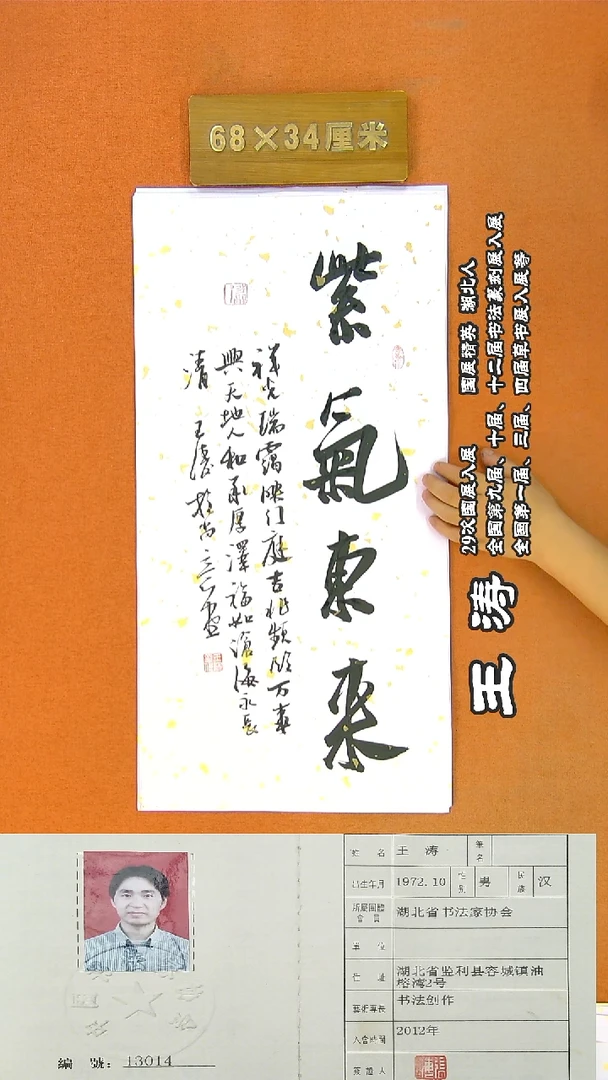 68×34厘米
紫氣東来
祥光瑞靄映门庭吉兆频临万事
興天地人和承厚泽福如滄海永長
清 王涛
国展精英 湖北人
29次国展入展
全国第九届、十届、十二届书法篆刻展入展
全国第一届、三届、四届草书展入展等
王涛
编 號：13014
姓 名 王 涛 筆名
出生年月 1972.10 性别 男 民族 汉
所屬團體會員 湖北省书法家协会
單 位
住 址 湖北省监利县容城镇油榨湾2号
藝術專長 书法创作
入會時間 2012年
簽證人